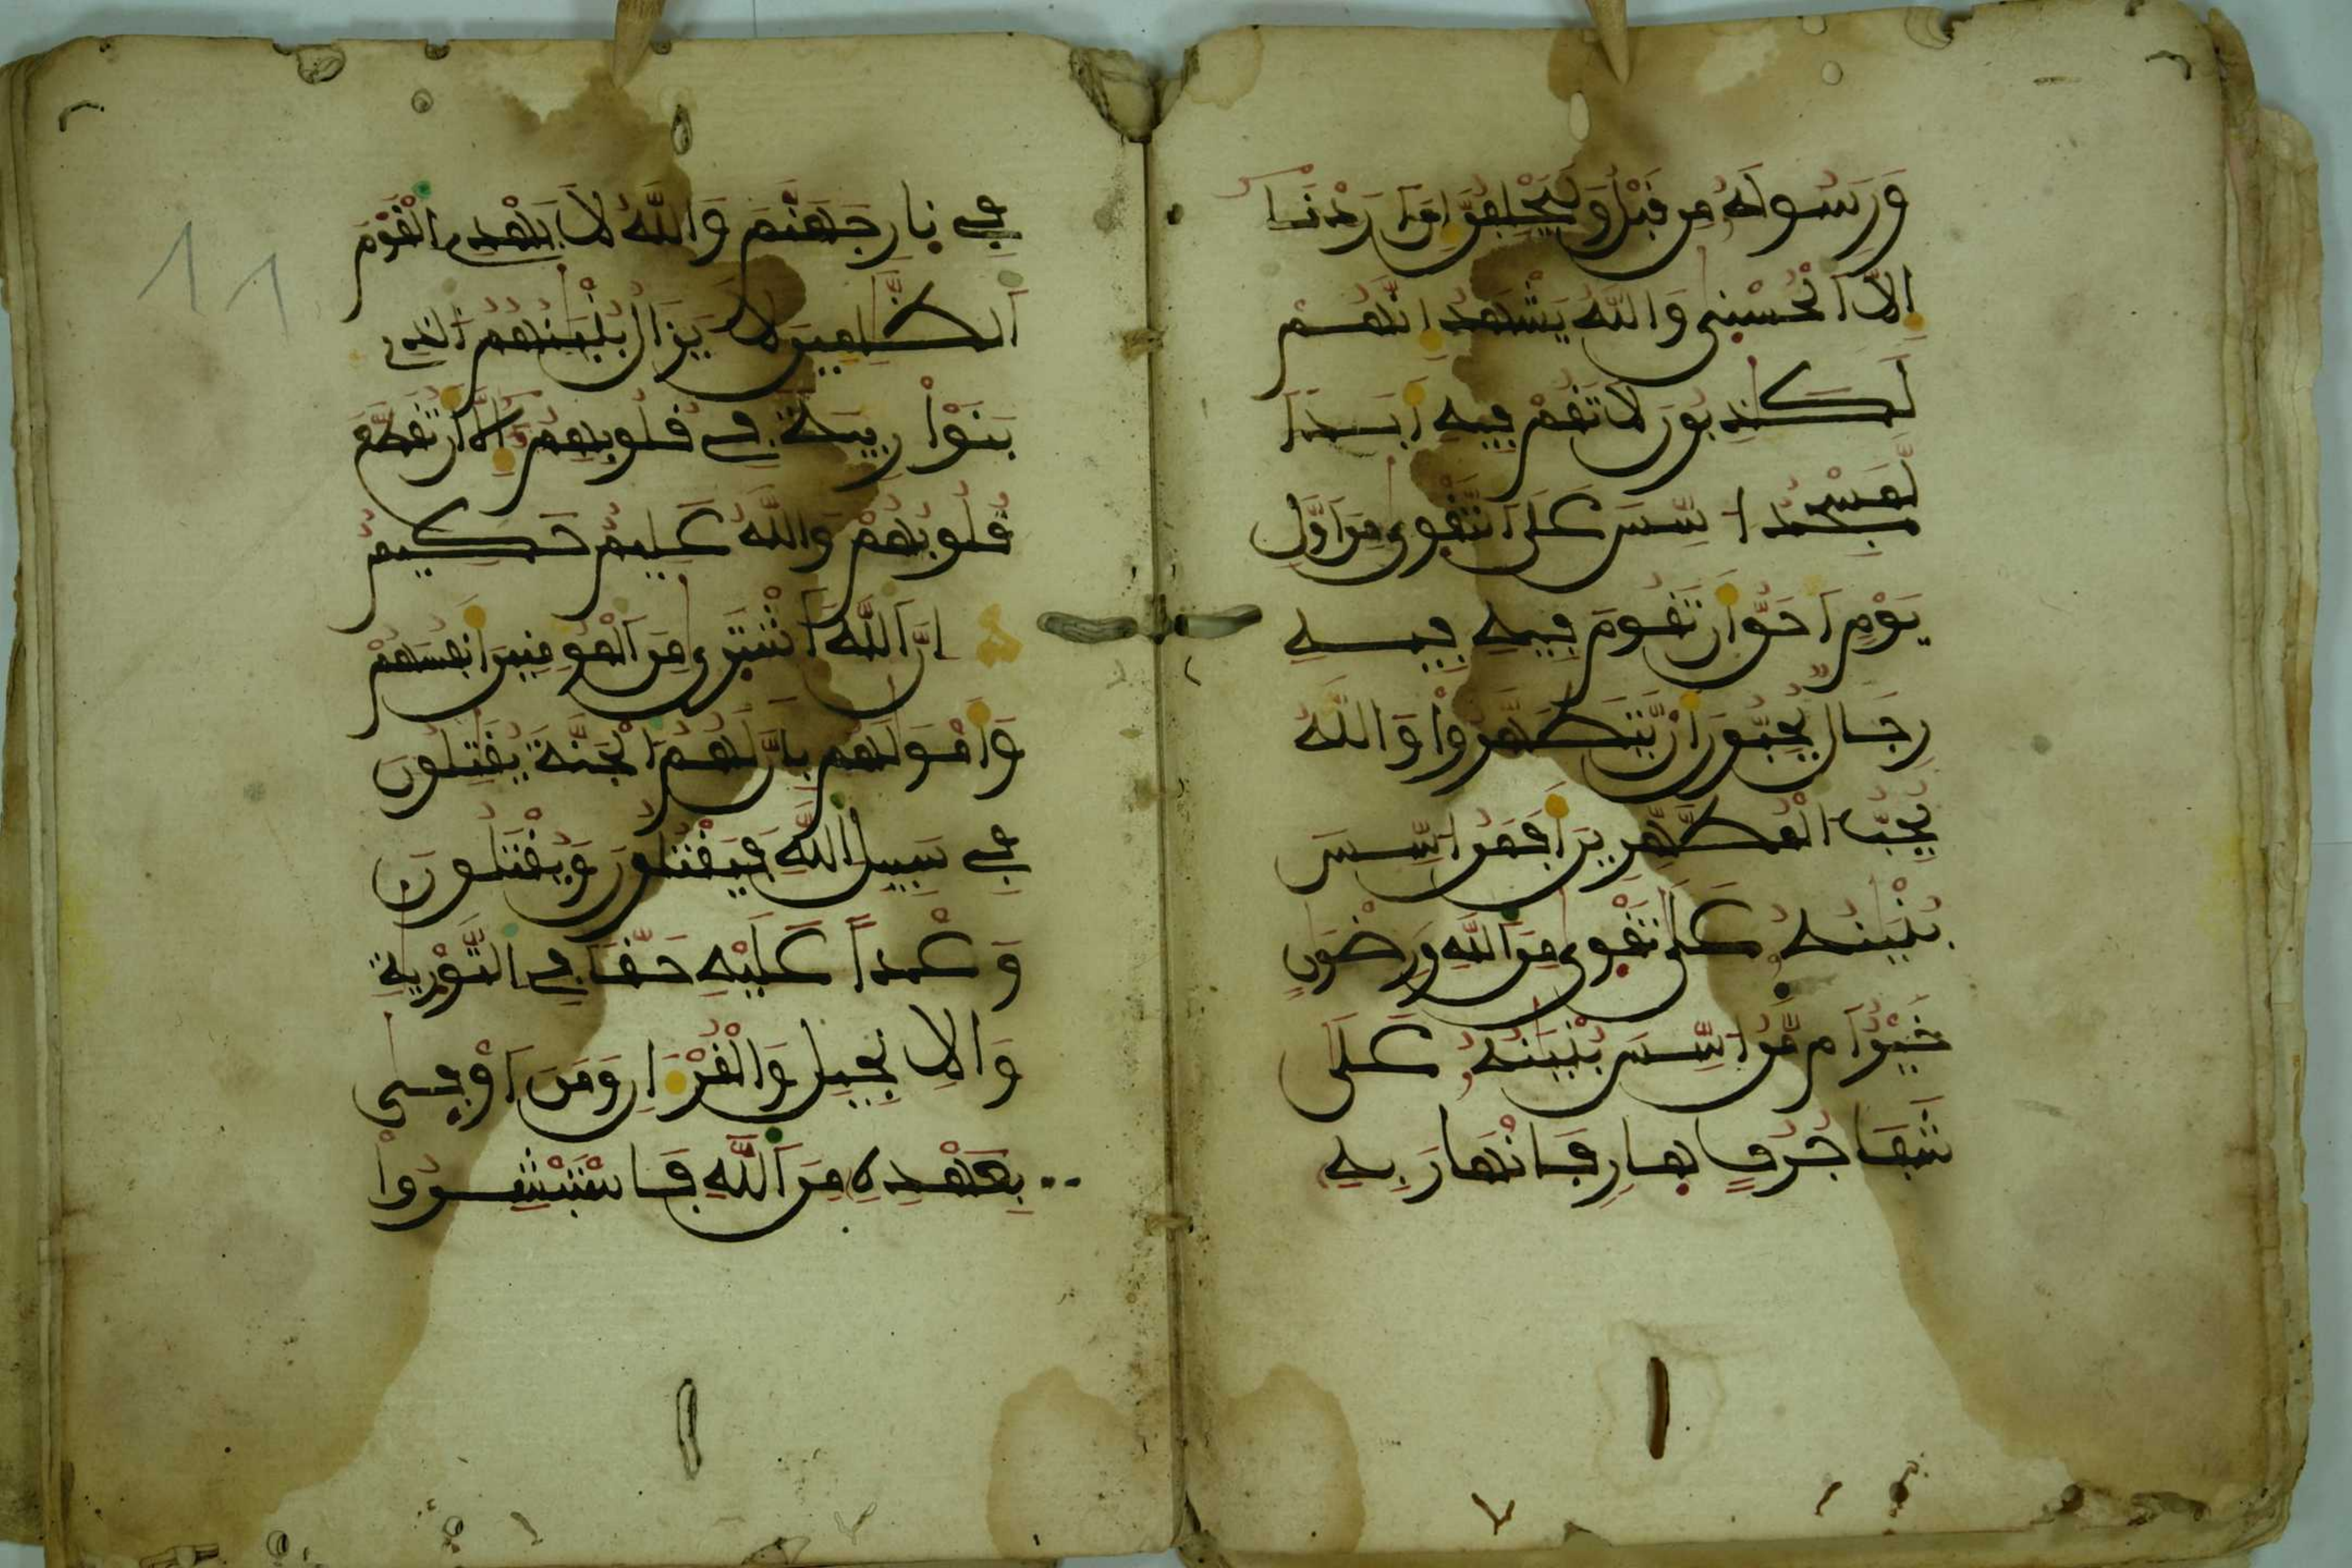 وَرَسُولَهُ مِن قَبْلُ وَلَيَحْلِفُنَّ إِنَ اَرَدْنَا
إِلَّا اَلْحُسْنَى وَاللَّهُ يَشْهَدُ إِنَّهُمْ
لَكَٰذِبُونَ لَا تَقُمْ فِيهِ أَبَدًا
لَّمَسْجِدٌ ا۟سِّسَ عَلَى اَلتَّقْوَى مِنَ اَوَّلِ
يَوْمٍ اَحَقُّ أَن تَقُومَ فِيهِ فِيهِ
رِجَالٌ يُحِبُّونَ أَنْ يَّتَطَهَّرُوا۟ وَاللَّهُ
يُحِبُّ اُلْمُطَّهِّرِينَ أَفَمَنُ ا۟سِّسَ
بُنْيَٰنُهُ عَلَى تَقْوَى مِنَ اَللَّهِ وَرِضْوَٰنٍ
خَيْرٌ اَم مَّنُ ا۟سِّسَ بُنْيَٰنُهُ عَلَى
شَفَا جُرُفٍ هَارٍ فَانْهَارَ بِهِ
فِي نَارِ جَهَنَّمَ وَاللَّهُ لَا يَهْدِي اِلْقَوْمَ
اَلظَّٰلِمِينَ لَا يَزَالُ بُنْيَٰنُهُمُ اُلَّذِي
بَنَوْا۟ رِيبَةً فِي قُلُوبِهِمُ إِلَّا أَن تُقَطَّعَ
قُلُوبُهُمْ وَاللَّهُ عَلِيمٌ حَكِيمٌ
إِنَّ اَللَّهَ اَشْتَرَى مِنَ اَلْمُومِنِينَ أَنفُسَهُمْ
وَأَمْوَٰلَهُم بِأَنَّ لَهُمُ اُلْجَنَّةَ يُقَٰتِلُونَ
فِي سَبِيلِ اِللَّهِ فَيَقْتُلُونَ وَيُقْتَلُونَ
وَعْدًا عَلَيْهِ حَقًّا فِي اِلتَّوْرَيٰةِ
وَالِانجِيلِ وَالْقُرْءَانِ وَمَنَ اَوْفَىٰ
بِعَهْدِهِ مِنَ اَللَّهِ فَاسْتَبْشِرُوا۟
11